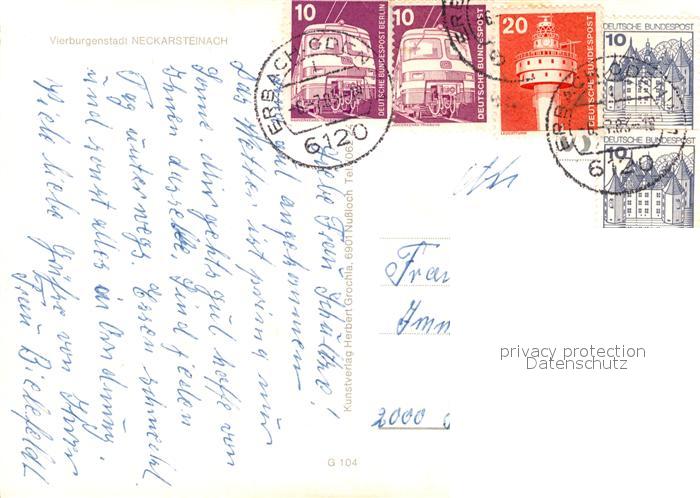 Vierburgenstadt NECKARSTEINACH
10
DEUTSCHE BUNDESPOST BERLIN
10
DEUTSCHE BUNDESPOST
20
DEUTSCHE BUNDESPOST
10
DEUTSCHE BUNDESPOST
10
DEUTSCHE BUNDESPOST
ERBACH, ODENW
6120
ERBACH, ODENW
6120
Liebe Frau Schultze!
gut angekommen
Das Wetter ist prima nur
Sonne. Mir gehts gut hoffe von
Ihnen dasselbe. Sind jeden
Tag unterwegs. Essen schmeckt
und sonst alles in Ordnung.
Viele liebe Grüße von Ihrer
Frau Bielefeldt
Kunstverlag Herbert Grochla, 6901 Nußloch Tel. 062
G 104
Frau
2000
privacy protection
Datenschutz